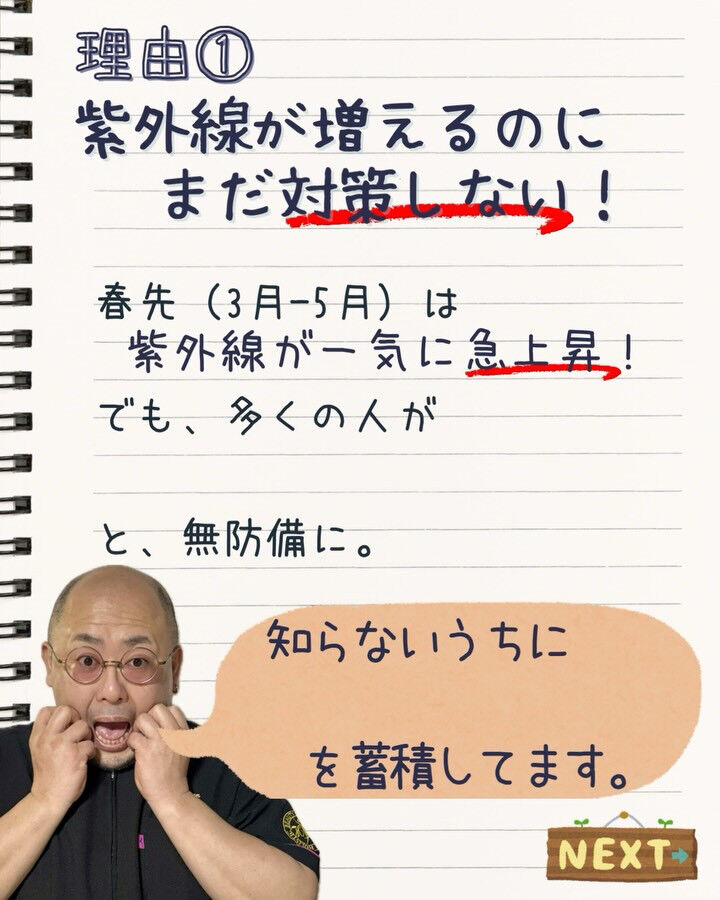 理由①
紫外線が増えるのに
まだ対策しない！
春先（3月-5月）は
紫外線が一気に急上昇！
でも、多くの人が
と、無防備に。
知らないうちに
を蓄積してます。
NEXT